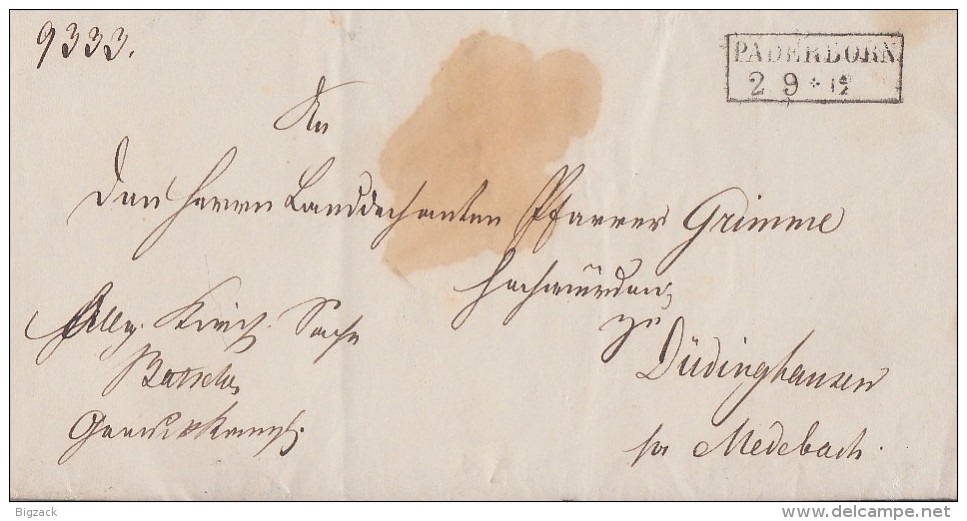 9333.
PADERBORN
2 9 * 12
An
Den Herrn Landdechanten Pfarrer Grimme
Hochwürden,
zu
Düdinghausen
per Medebach.
Allg. Kirch. Sache
Bigzack
www.delcampe.net